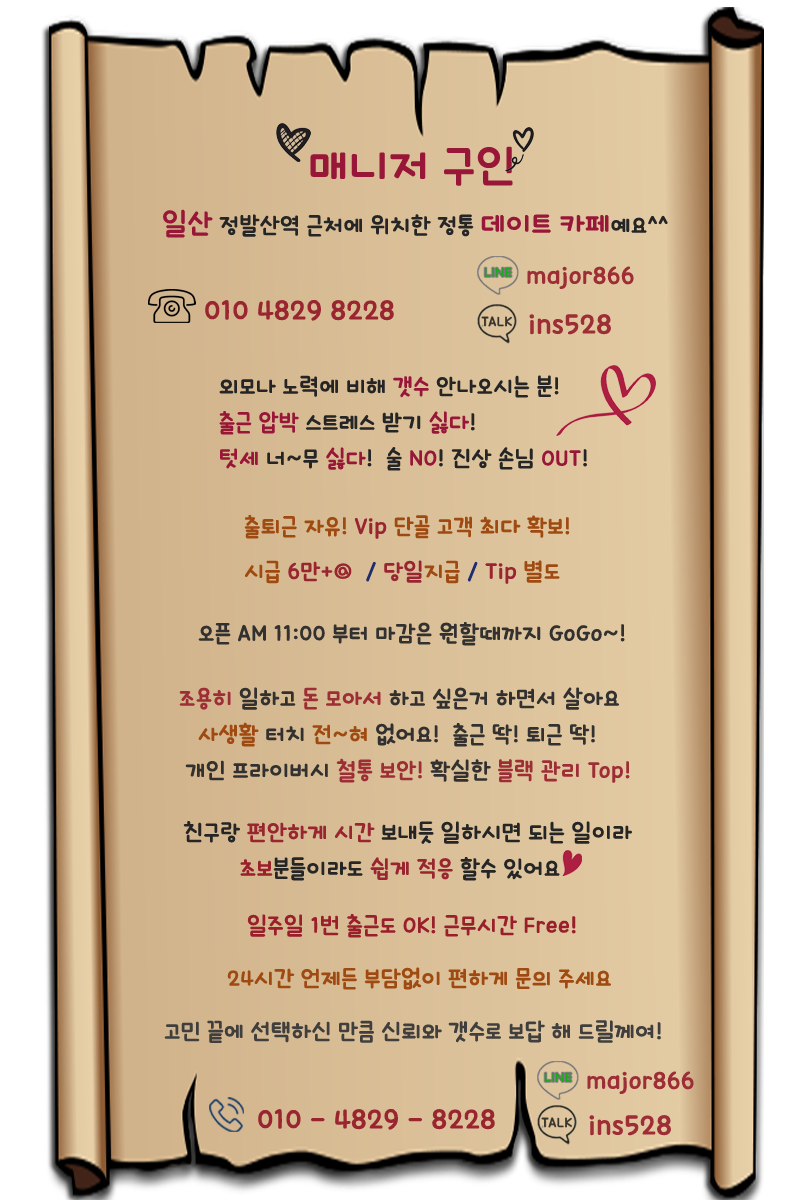 매니저 구인
일산 정발산역 근처에 위치한 정통 데이트 카페예요^^
LINE major866
010 4829 8228
TALK ins528
외모나 노력에 비해 갯수 안나오시는 분!
출근 압박 스트레스 받기 싫다!
텃세 너~무 싫다! 술 NO! 진상 손님 OUT!
출퇴근 자유! Vip 단골 고객 최다 확보!
시급 6만+@ / 당일지급 / Tip 별도
오픈 AM 11:00 부터 마감은 원할때까지 GoGo~!
조용히 일하고 돈 모아서 하고 싶은거 하면서 살아요
사생활 터치 전~혀 없어요! 출근 딱! 퇴근 딱!
개인 프라이버시 철통 보안! 확실한 블랙 관리 Top!
친구랑 편안하게 시간 보내듯 일하시면 되는 일이라
초보분들이라도 쉽게 적응 할수 있어요
일주일 1번 출근도 OK! 근무시간 Free!
24시간 언제든 부담없이 편하게 문의 주세요
고민 끝에 선택하신 만큼 신뢰와 갯수로 보답 해 드릴께여!
LINE major866
010 - 4829 - 8228
TALK ins528